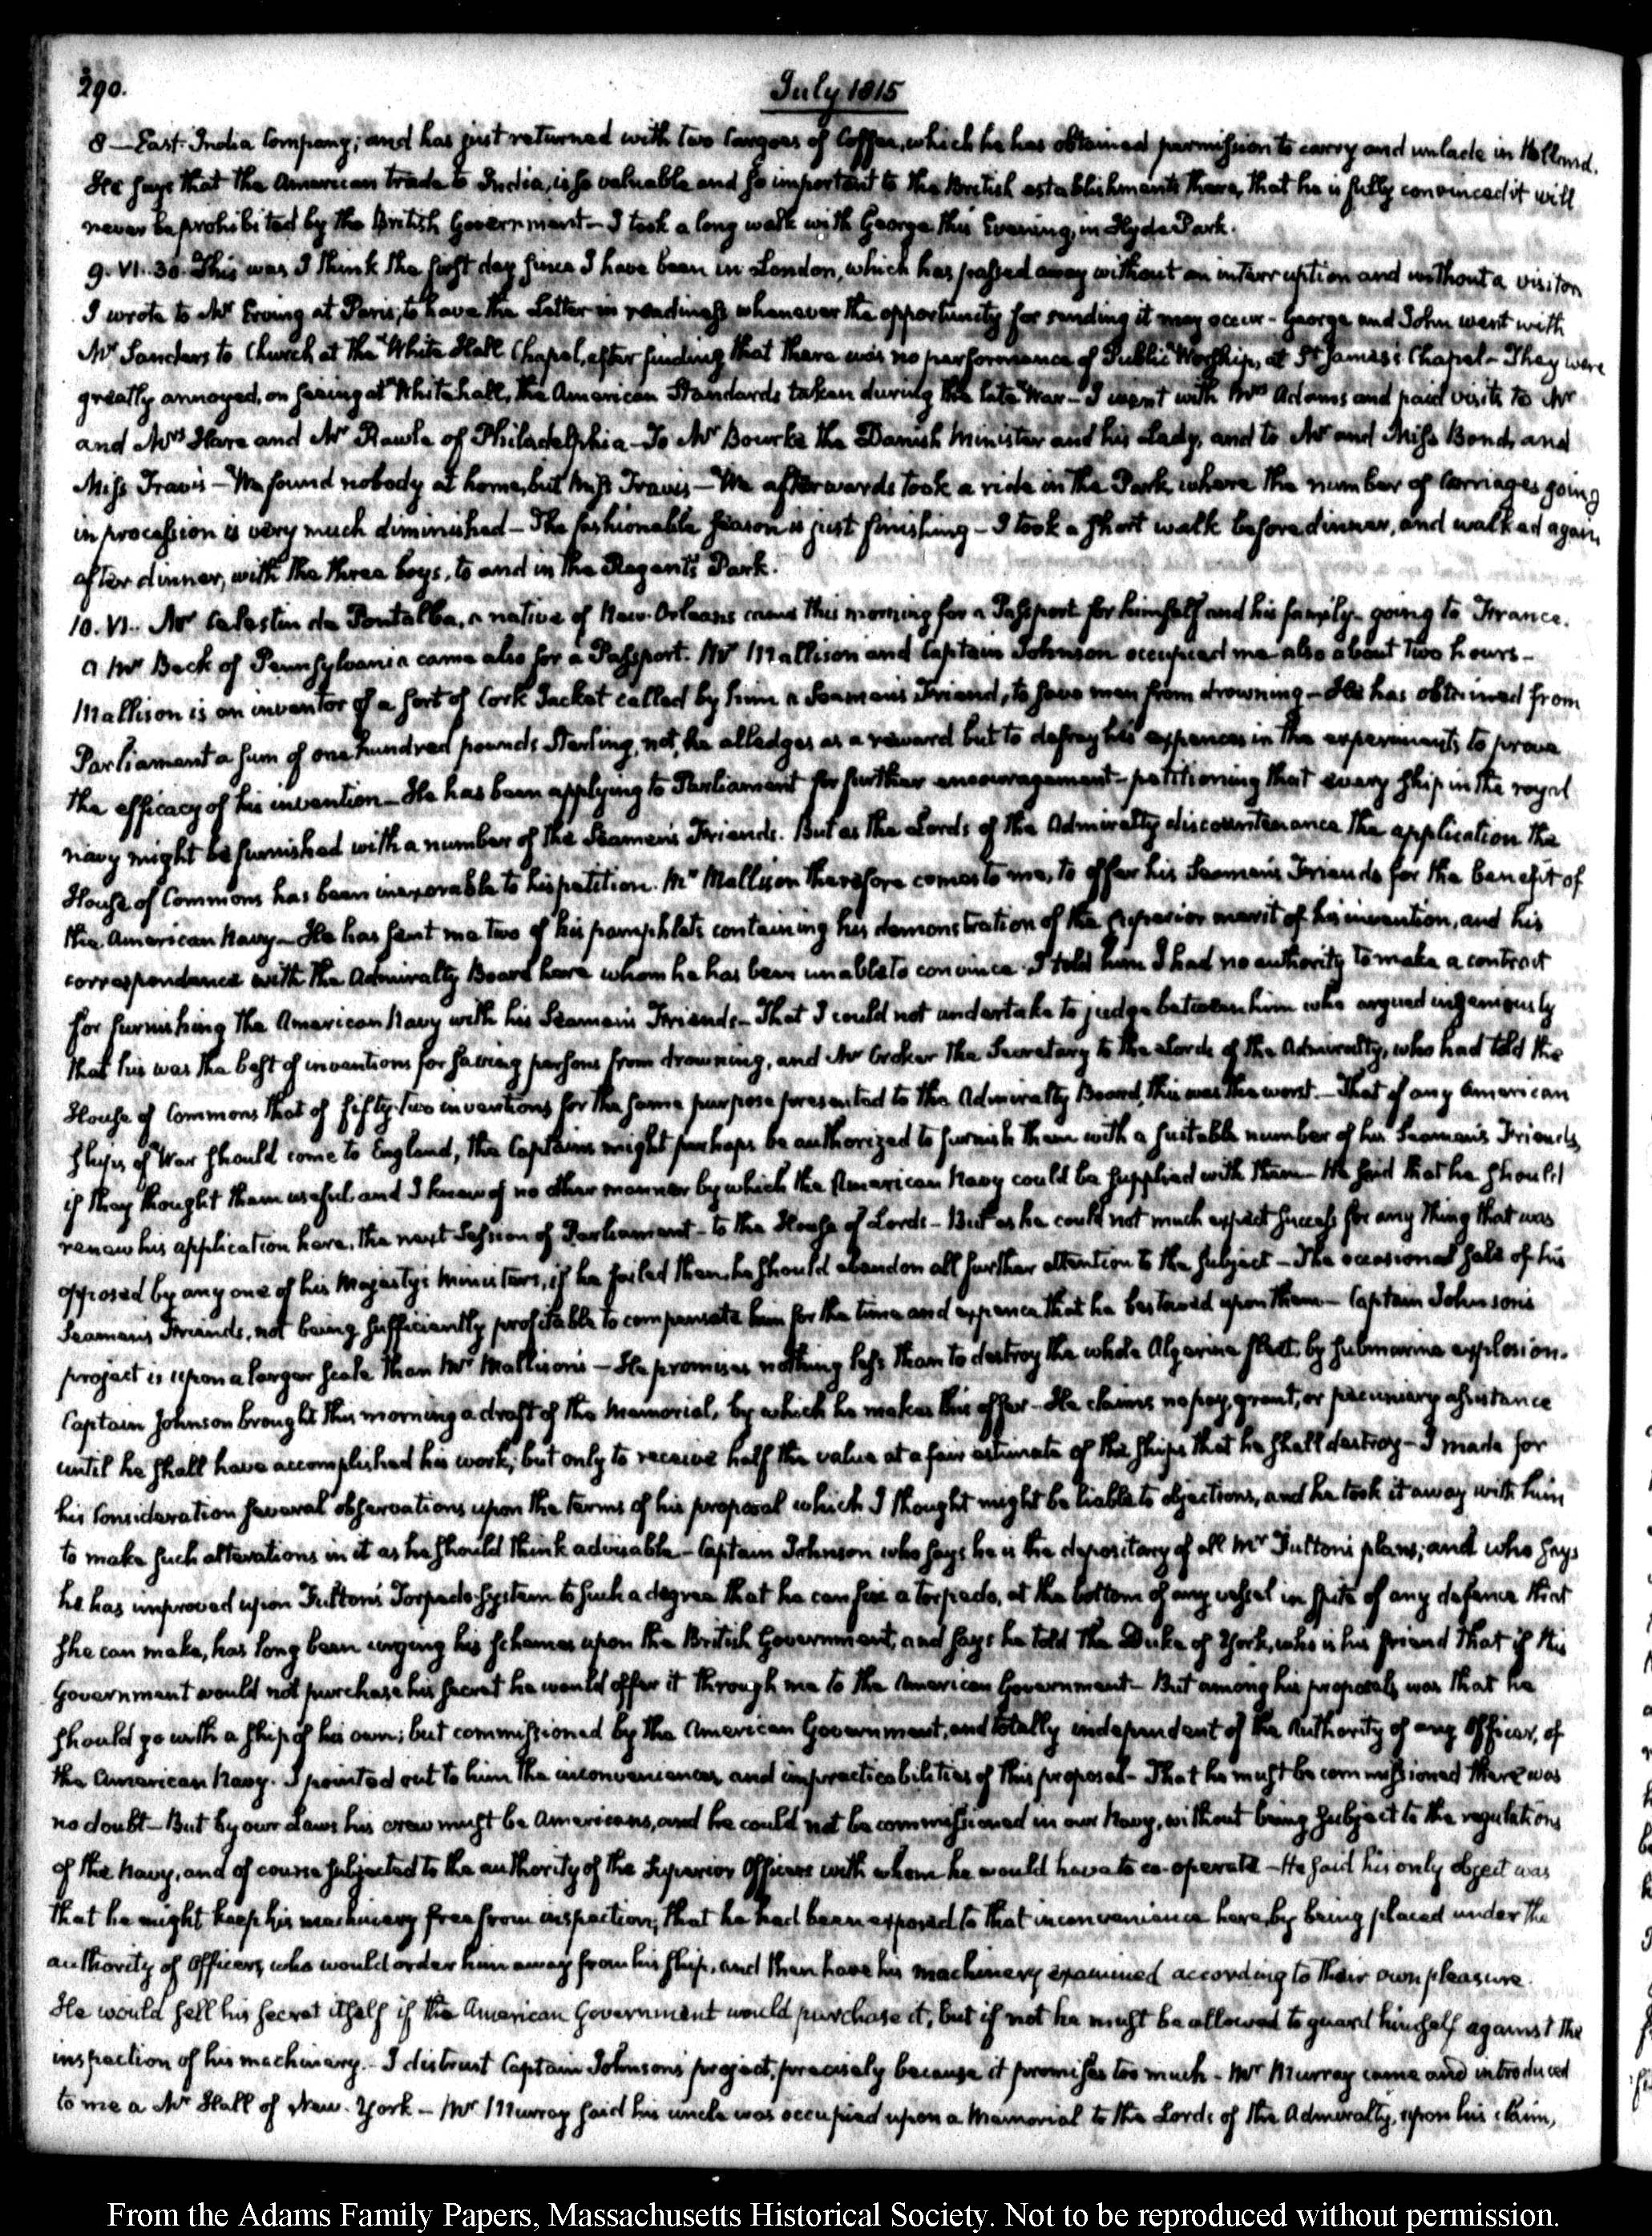 290.
July 1815
8 — East-India Company; and has just returned with two Cargoes of Coffee, which he has obtained permission to carry and unlade in Holland.
He says that the American trade to India, is so valuable and so important to the British establishments there, that he is fully convinced it will
never be prohibited by the British Government — I took a long walk with George this Evening, in Hyde Park.
9. VI. 30. This was I think the first day since I have been in London, which has passed away without an interruption and without a visitor
I wrote to Mr Erving at Paris, to have the Letter in readiness whenever the opportunity for sending it may occur — George and John went with
Mr Sanders to Church at the White Hall Chapel, after finding that there was no performance of Public Worship, at St James's Chapel — They were
greatly annoyed, on seeing at Whitehall, the American Standards taken during the late War — I went with Mrs Adams and paid visits to Mr
and Mrs Hare and Mr Rawle of Philadelphia — To Mr Bourke the Danish Minister and his Lady, and to Mr and Miss Bond, and
Miss Travis — We found nobody at home, but Miss Travis — We afterwards took a ride in the Park, where the number of Carriages going
in procession is very much diminished — The fashionable season is just finishing — I took a short walk before dinner, and walked again
after dinner, with the three boys, to and in the Regent's Park.
10. VI. Mr Celestin de Pontalba, a native of New-Orleans came this morning for a Passport for himself and his family — going to France.
A Mr Beck of Pennsylvania came also for a Passport. Mr Mallison and Captain Johnson occupied me also about two hours —
Mallison is an inventor of a sort of Cork Jacket called by him a Seaman's Friend, to save men from drowning — He has obtained from
Parliament a sum of one hundred pounds Sterling, not, he alledges as a reward but to defray his expences in the experiments to prove
the efficacy of his invention — He has been applying to Parliament for further encouragement — petitioning that every ship in the royal
navy might be furnished with a number of the Seamen's Friends. But as the Lords of the Admiralty discountenance the application the
House of Commons has been inexorable to his petition. Mr Mallison therefore comes to me, to offer his Seaman's Friends for the benefit of
the American Navy — He has sent me two of his pamphlets containing his demonstration of the superior merit of his invention, and his
correspondence with the Admiralty Board here whom he has been unable to convince. I told him I had no authority to make a contract
for furnishing the American Navy with his Seaman's Friends — That I could not undertake to judge between him who argued ingeniously
that his was the best of inventions for saving persons from drowning, and Mr Croker the Secretary to the Lords of the Admiralty, who had told the
House of Commons that of fifty-two inventions for the same purpose presented to the Admiralty Board, this was the worst. — That if any American
Ships of War should come to England, the Captains might perhaps be authorized to furnish them with a suitable number of his Seaman's Friends,
if they thought them useful, and I knew of no other manner by which the American Navy could be supplied with them — He said that he should
renew his application here, the next Session of Parliament — to the House of Lords — But as he could not much expect success for any thing that was
opposed by any one of his Majesty's Ministers, if he failed then, he should abandon all further attention to the subject — The occasional sale of his
Seaman's Friends, not being sufficiently profitable to compensate him for the time and expence that he bestowed upon them — Captain Johnson's
project is upon a larger scale than Mr Mallison's — He promises nothing less than to destroy the whole Algerine fleet by submarine explosion.
Captain Johnson brought this morning a draft of the Memorial, by which he makes this offer — He claims no pay, grant, or pecuniary assistance
until he shall have accomplished his work; but only to receive half the value at a fair estimate of the ships that he shall destroy — I made for
his Consideration several observations upon the terms of his proposal which I thought might be liable to objections, and he took it away with him
to make such alterations in it as he should think advisable — Captain Johnson who says he is the depositary of all Mr Fulton's plans; and who says
he has improved upon Fulton's Torpedo System to such a degree that he can fix a torpedo, at the bottom of any vessel in spite of any defence that
she can make, has long been urging his schemes upon the British Government, and says he told the Duke of York, who is his friend that if this
Government would not purchase his secret he would offer it through me to the American Government — But among his proposals was that he
should go with a ship of his own; but commissioned by the American Government, and totally independent of the Authority of any Officer, of
the American Navy. I pointed out to him the inconveniences, and impracticabilities of this proposal — That he must be commissioned there was
no doubt — But by our Laws his crew must be Americans, and he could not be commissioned in our Navy, without being subject to the regulations
of the Navy, and of course subjected to the authority of the Superior Officers with whom he would have to co-operate — He said his only object was
that he might keep his machinery free from inspection; that he had been exposed to that inconvenience here, by being placed under the
authority of Officers, who would order him away from his ship, and then have his machinery examined according to their own pleasure.
He would sell his secret itself if the American Government would purchase it, but if not he must be allowed to guard himself against the
inspection of his machinery. — I distrust Captain Johnson's project, precisely because it promises too much — Mr Murray came and introduced
to me a Mr Hall of New-York — Mr Murray said his uncle was occupied upon a Memorial to the Lords of the Admiralty, upon his claim,
From the Adams Family Papers, Massachusetts Historical Society. Not to be reproduced without permission.